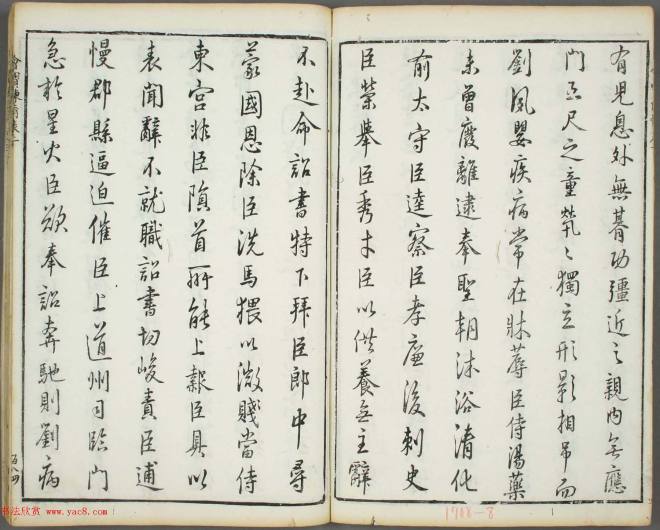 有兒息外無朞功彊近之親内无應
門五尺之童煢〻獨立形影相吊而
劉夙嬰疾病常在牀蓐臣侍湯藥
未曾廢離逮奉聖朝沐浴清化
前太守臣逵察臣孝廉後刺史
臣榮舉臣秀才臣以供養无主辭
不赴命詔書特下拜臣郎中尋
蒙國恩除臣洗馬猥以微賤當侍
東宮非臣隕首所能上報臣具以
表聞辭不就職詔書切峻責臣逋
慢郡縣逼迫催臣上道州司臨門
急於星火臣欲奉詔奔馳則劉病
书法欣赏 www.yac8.com